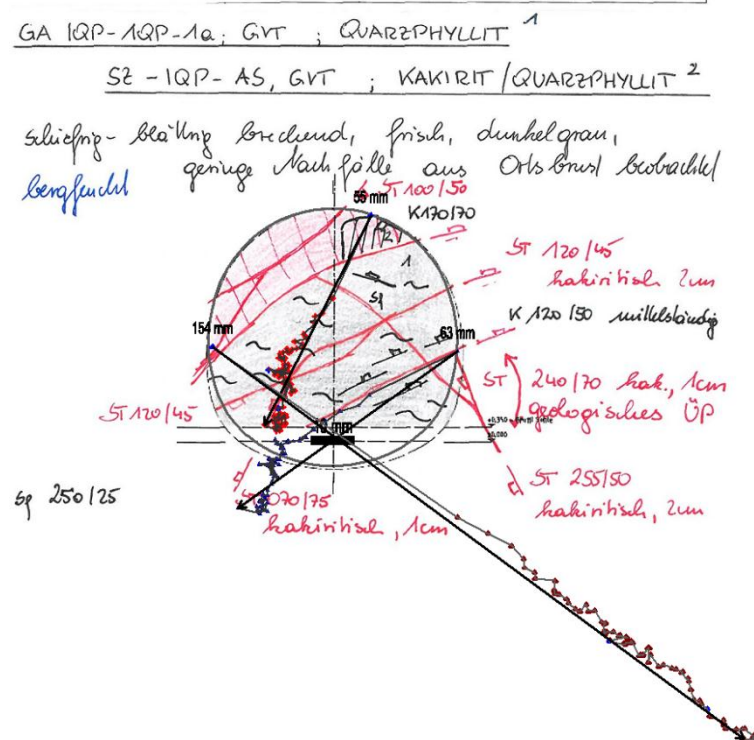 GA IQP-1QP-1a; GVT ; QUARZPHYLLIT 1
SZ-IQP-AS, GVT ; KAKIRIT/QUARZPHYLLIT 2
schiefrig-blättrig brechend, frisch, dunkelgrau,
bergfeucht geringe Nachfälle aus Ortsbrust beobachtet
ST 100/50
55 mm
K170/70
2
1
ST 120/45
kakiritisch 2cm
sf
K 120/50 mittelständig
154 mm
63 mm
ST 240/70 kak., 1cm
geologisches ÜP
ST 120/45
10 mm
ST 255/50
kakiritisch, 2cm
sf 250/25
ST 070/75
kakiritisch, 1cm